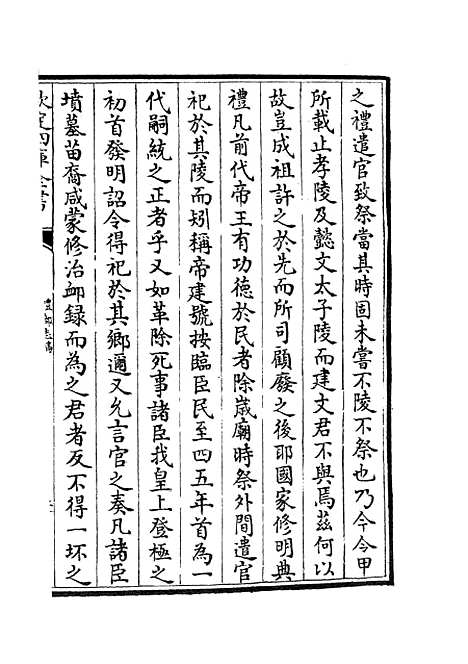 之禮遣官致祭當其時固未嘗不陵不祭也乃今令甲
所載止孝陵及懿文太子陵而建文君不與焉茲何以
故豈成祖許之於先而所司顧廢之後耶國家修明典
禮凡前代帝王有功德於民者除嵗廟時祭外間遣官
祀於其陵而矧稱帝建號按臨臣民至四五年首為一
代嗣統之正者乎又如革除死事諸臣我皇上登極之
初首發明詔令得祀於其鄉邇又允言官之奏凡諸臣
墳墓苗裔咸蒙修治䘏録而為之君者反不得一坏之
欽定四庫全書